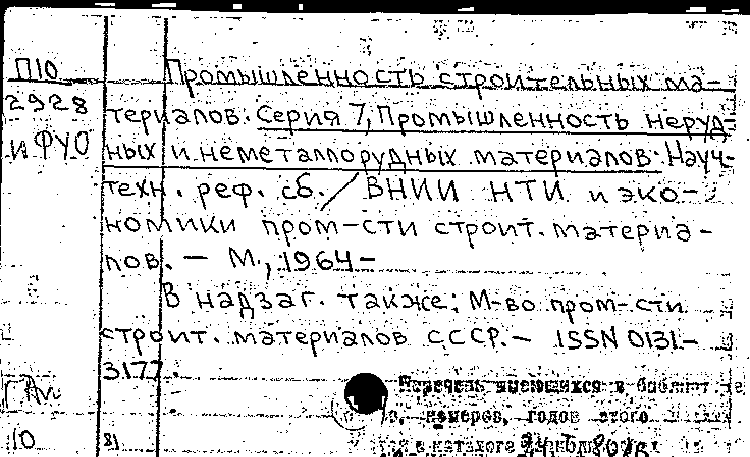 П10
2928
и ФУО
Промышленность строительных ма-
териалов. Серия 7, Промышленность неруд-
ных и неметаллорудных материалов: Науч-
техн. реф. сб. / ВНИИ НТИ и эко-
номики пром-сти строит. материа-
лов. – М., 1964–
В надзаг. также: М-во пром-сти
строит. материалов СССР. – ISSN 0131-
3177.
Перечень имеющихся в
номеров, годов этого
в каталоге
10 81